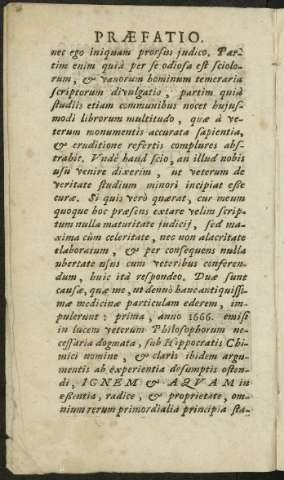 PRÆFATIO.
nec ego iniquam prorsus judico. Par-
tim enim quià per se odiosa est sciolo-
rum, & vanorum hominum temeraria
scriptorum divulgatio; partim quià
studiis etiam communibus nocet hujus-
modi librorum multitudo, quæ à ve-
terum monumentis accurata sapientia,
& eruditione refertis complures abs-
trahit. Undè haud scio, an illud nobis
usu venire dixerim, ut veterum de
veritate studium minori incipiat esse
curæ. Si quis verò quærat, cur meum
quoque hoc præsens extare velim scrip-
tum nulla maturitate judicij, sed ma-
xima cùm celeritate, nec non alacritate
elaboratum, & per consequens nulla
ubertate usus cum veteribus conferen-
dum, huic ità respondeo. Duæ sunt
causæ, quæ me, ut denuò hanc antiquissi-
mæ medicinæ particulam ederem, im-
pulerunt: prima, anno 1666. emisi
in lucem veterum Philosophorum ne-
cessaria dogmata, sub Hippocratis Chi-
mici nomine, & claris ibidem argu-
mentis ab experientia desumptis osten-
di, IGNEM & AQVAM in
essentia, radice, & proprietate, om-
nium rerum primordialia principia sta-